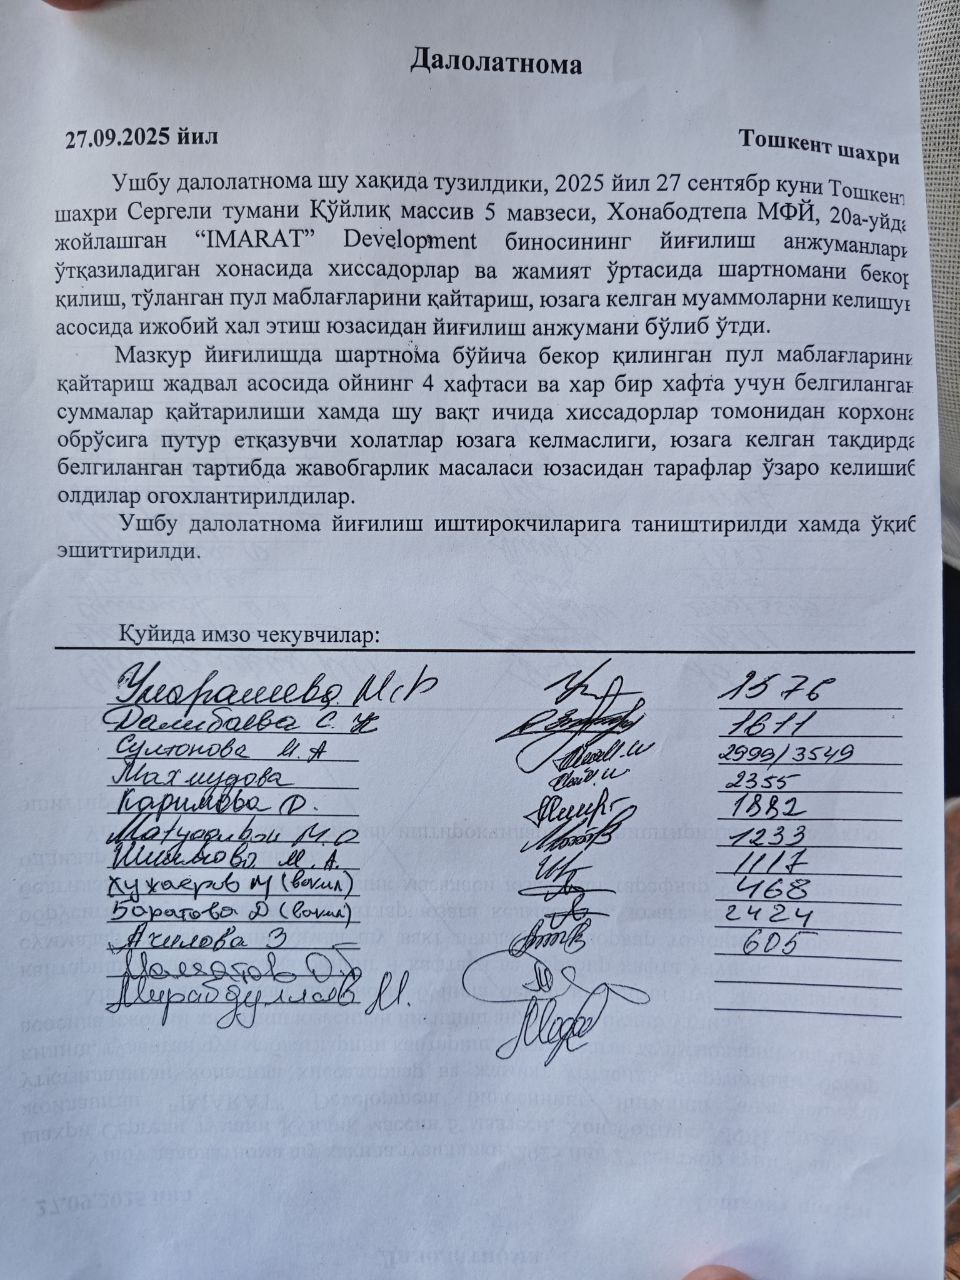 Далолатнома
27.09.2025 йил Тошкент шахри
Ушбу далолатнома шу хақида тузилдики, 2025 йил 27 сентябр куни Тошкент
шахри Сергели тумани Қўйлиқ массив 5 мавзеси, Хонабодтепа МФЙ, 20а-уйда
жойлашган “IMARAT” Development биносининг йиғилиш анжуманлари
ўтқазиладиган хонасида хиссадорлар ва жамият ўртасида шартномани бекор
қилиш, тўланган пул маблағларини қайтариш, юзага келган муаммоларни келишув
асосида ижобий хал этиш юзасидан йиғилиш анжумани бўлиб ўтди.
Мазкур йиғилишда шартнома бўйича бекор қилинган пул маблағларини
қайтариш жадвал асосида ойнинг 4 хафтаси ва хар бир хафта учун белгиланган
суммалар қайтарилиши хамда шу вақт ичида хиссадорлар томонидан корхона
обрўсига путур етқазувчи холатлар юзага келмаслиги, юзага келган тақдирда
белгиланган тартибда жавобгарлик масаласи юзасидан тарафлар ўзаро келишиб
олдилар огохлантирилдилар.
Ушбу далолатнома йиғилиш иштирокчиларига таништирилди хамда ўқиб
эшиттирилди.
Қуйида имзо чекувчилар:
1576
Далибаева С. 1611
Султонова М.А 2999/3549
Махмудова 2355
Каримова D. 1882
1233
М. А. 1117
Хужаёров М (вакил) 468
Баратова Д (вакил) 2424
Ачилова З 605
Мирабдуллаев М.